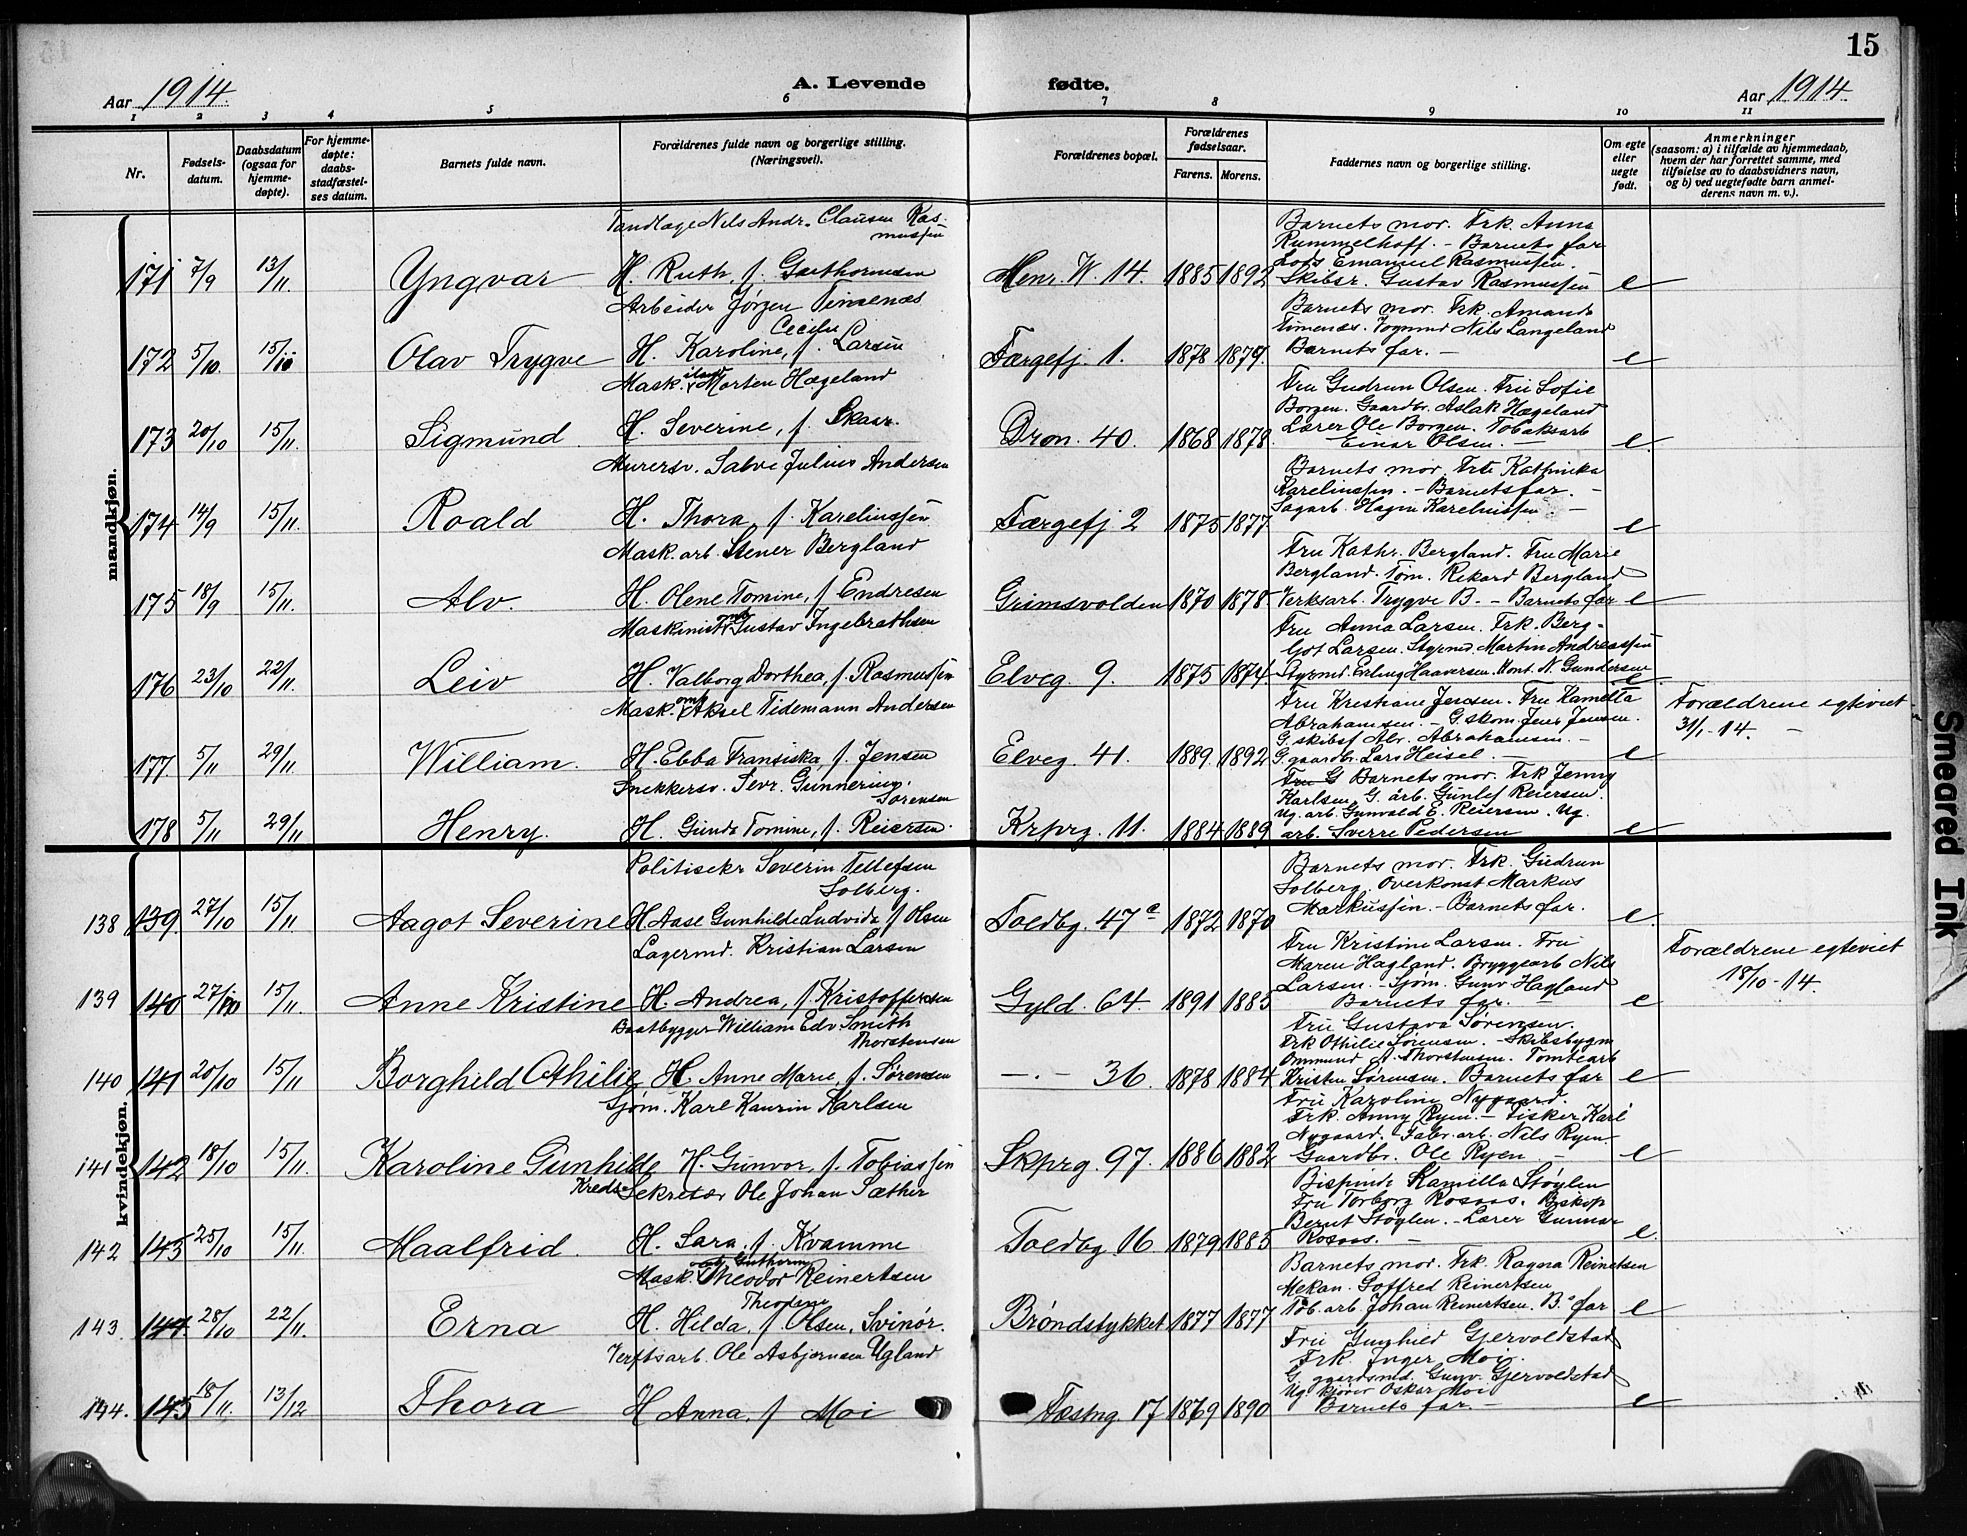 15
Aar 1914.
A. Levende fødte.
Aar 1914.
1 2 3 4 5 6 7 8 9 10 11
Nr.
Fødsels-
datum.
Daabsdatum
(ogsaa for
hjemme-
døpte).
For hjemme-
døpte:
daabs-
stadfæstel-
ses datum.
Barnets fulde navn.
Forældrenes fulde navn og borgerlige stilling.
(Næringsvei).
Forældrenes bopæl.
Forældrenes
fødselsaar.
Farens. Morens.
Faddernes navn og borgerlige stilling.
Om egte
eller
uegte
født.
Anmerkninger
(saasom: a) i tilfælde av hjemmedaab,
hvem der har forrettet samme, med
tilføielse av to daabsvidners navn,
og b) ved uegtefødte barn anmel-
derens navn m. v.).
mandkjøn.
Tandlæge Nils Andr. Clausen Ras-
mussen
171 7/9 13/11 Yngvar H. Ruth, f. Henr. W. 14. 1885 1892 e
Barnets mor. Frk. Anna
Rummelhoff. - Barnets far
Lods Emanuel Rasmussen.
Skibsr. Gustav Rasmussen
Arbeider Jørgen Timenæs
Cecilie
172 5/10 15/11 Olav Trygve H. Karoline, f. Larsen Færgefj. 1. 1878 1879. e
Barnets mor. Frk. Amanda
Timenæs. Vognmd Nils Langeland
Barnets far. -
Mask. Morten Hægeland
173 20/10 15/11. Sigmund. H. Severine, f. Skaar. Dron. 40. 1868 1878. e
Fru Gudrun Olsen. Fru Sofie
Borgen. Gaardbr. Aslak Hægeland
Lærer Ole Borgen. Tobaksarb
Einar Olsen. -
Murersv. Salve Julius Andersen
174 14/9 15/11. Roald H. Thora, f. Karelinssen Færgefj 2 1875 1877 e
Barnets mor. Frk Kathinka
Karelinssen. - Barnets far. -
Sagarb. Hagin Karelinssen -
Mask. arb. Stener Bergland
175 18/9 15/11. Alv. H. Olene Tomine, f. Endresen Grimsvolden 1870 1878 e
Fru Kathr. Bergland. Fru Marie
Bergland. Tøm. Rikard Bergland
Verksarb. Trygve B. - Barnets far
Maskinist Gustav Ingebrethsen
176 23/10 22/11. Leiv H. Valborg Dorthea, f. Rasmussen Elveg 9. 1875 1874. e
Fru Anna Larsen. Frk. Berg-
liot Larsen. Styrmd Martin Andreassen
Styrmd. Erling Haaversen. Kont. N. Gundersen
Mask. Aksel Tidemann Andersen
177 5/11 29/11 William. H. Ebba Fransiska, f. Jensen Elveg. 41. 1889. 1892 e
Fru Kristiane Jensen. Fru Kamilla
Abrahamsen. - G. skom. Jens Jensen.
G. skibsf Alv. Abrahamsen. -
G. gaardbr. Lars Heisel. -
Forældrene egteviet
31/1 - 14. -
Snekkersv. Sevr. Gunnering.
Sørensen
178 5/11 29/11 Henry. H. Gunda Tomine, f. Reiersen. Krprg. 11. 1884 1889 e
Fru G Barnets mor. Frk Jenny
Karlsen. G. arb. Gunlef Reiersen.
Ug. arb. Gunvald E. Reiersen. Ug.
arb. Sverre Pedersen
kvindekjøn.
Politisekr Severin Tellefsen
Solberg.
138 139 27/10 15/11 Aagot Severine H Aase Gunhilde Ludvida f Olsen Toldbg. 47c 1872 1870 e.
Barnets mor. Frk. Gudrun
Solberg. Overkonst Markus
Markussen. - Barnets far.
Lagermd. Kristian Larsen
139 140 27/10 15/11 Anne Kristine H. Andrea, f. Kristoffersen Gyld. 64. 1891 1885 e
Fru Kristine Larsen. Fru
Maren Hagland. Bryggearb Nils
Larsen. - Sjøm. Gunv Hagland
Barnets far. -
Forældrene egteviet
18/10 - 14.
Baatbygger William Edv Smith
Thorstensen
140 141 20/10 15/11 Borghild Othilie H. Anne Marie, f. Sørensen -.- 36. 1878 1884 e
Fru Gustava Sørensen.
Frk Othilie Sørensen. - Skibsbygm
Ommund A. Thorstensen. Tomtearb
Kristen Sørensen. Barnets far
Sjøm. Karl Kaurin Karlsen
141 142 18/10 15/11. Karoline Gunhilde H. Gunvor, f. Tobiassen Skprg. 97. 1886 1882 e
Fru Karoline Nygaard.
Frk. Anny Ryen. - Fisker Karl
Nygaard. Fabr. arb. Nils Ryen
Gaardbr. Ole Ryen. -
Kreds-Sekretær Ole Johan Sæther
142 143 25/10 15/11. Maalfrid. H. Sara, f. Kvamme Toldbg 16 1879 1885 e.
Bispinde Kamilla Støylen
Fru Torborg Rosaas. Biskop
Bernt Støylen. - Lærer Gunnar
Rosaas. -
Mask. Theodor Reinertsen
Theodine
143 144. 28/10 22/11. Erna H. Hilda, f. Olsen, Svinør. Brøndstykket 1877 1877 e
Barnets mor. Frk. Ragna Reinertsen
Mekan. Gotfred Reinertsen
Tob. arb. Johan Reinertsen. B. far
Verftsarb. Ole Asbjørnsen Ugland
144. 145 18/11. 13/12 Thora H Anna, f Moi Fæstng. 17 1869 1890 e
Fru Gunhild Gjervoldstad
Frk. Inger Moi.
G. gaardsmd. Gunv. Gjervoldstad
Ug. kjører Oskar Moi
Barnets far. -
Smeared Ink